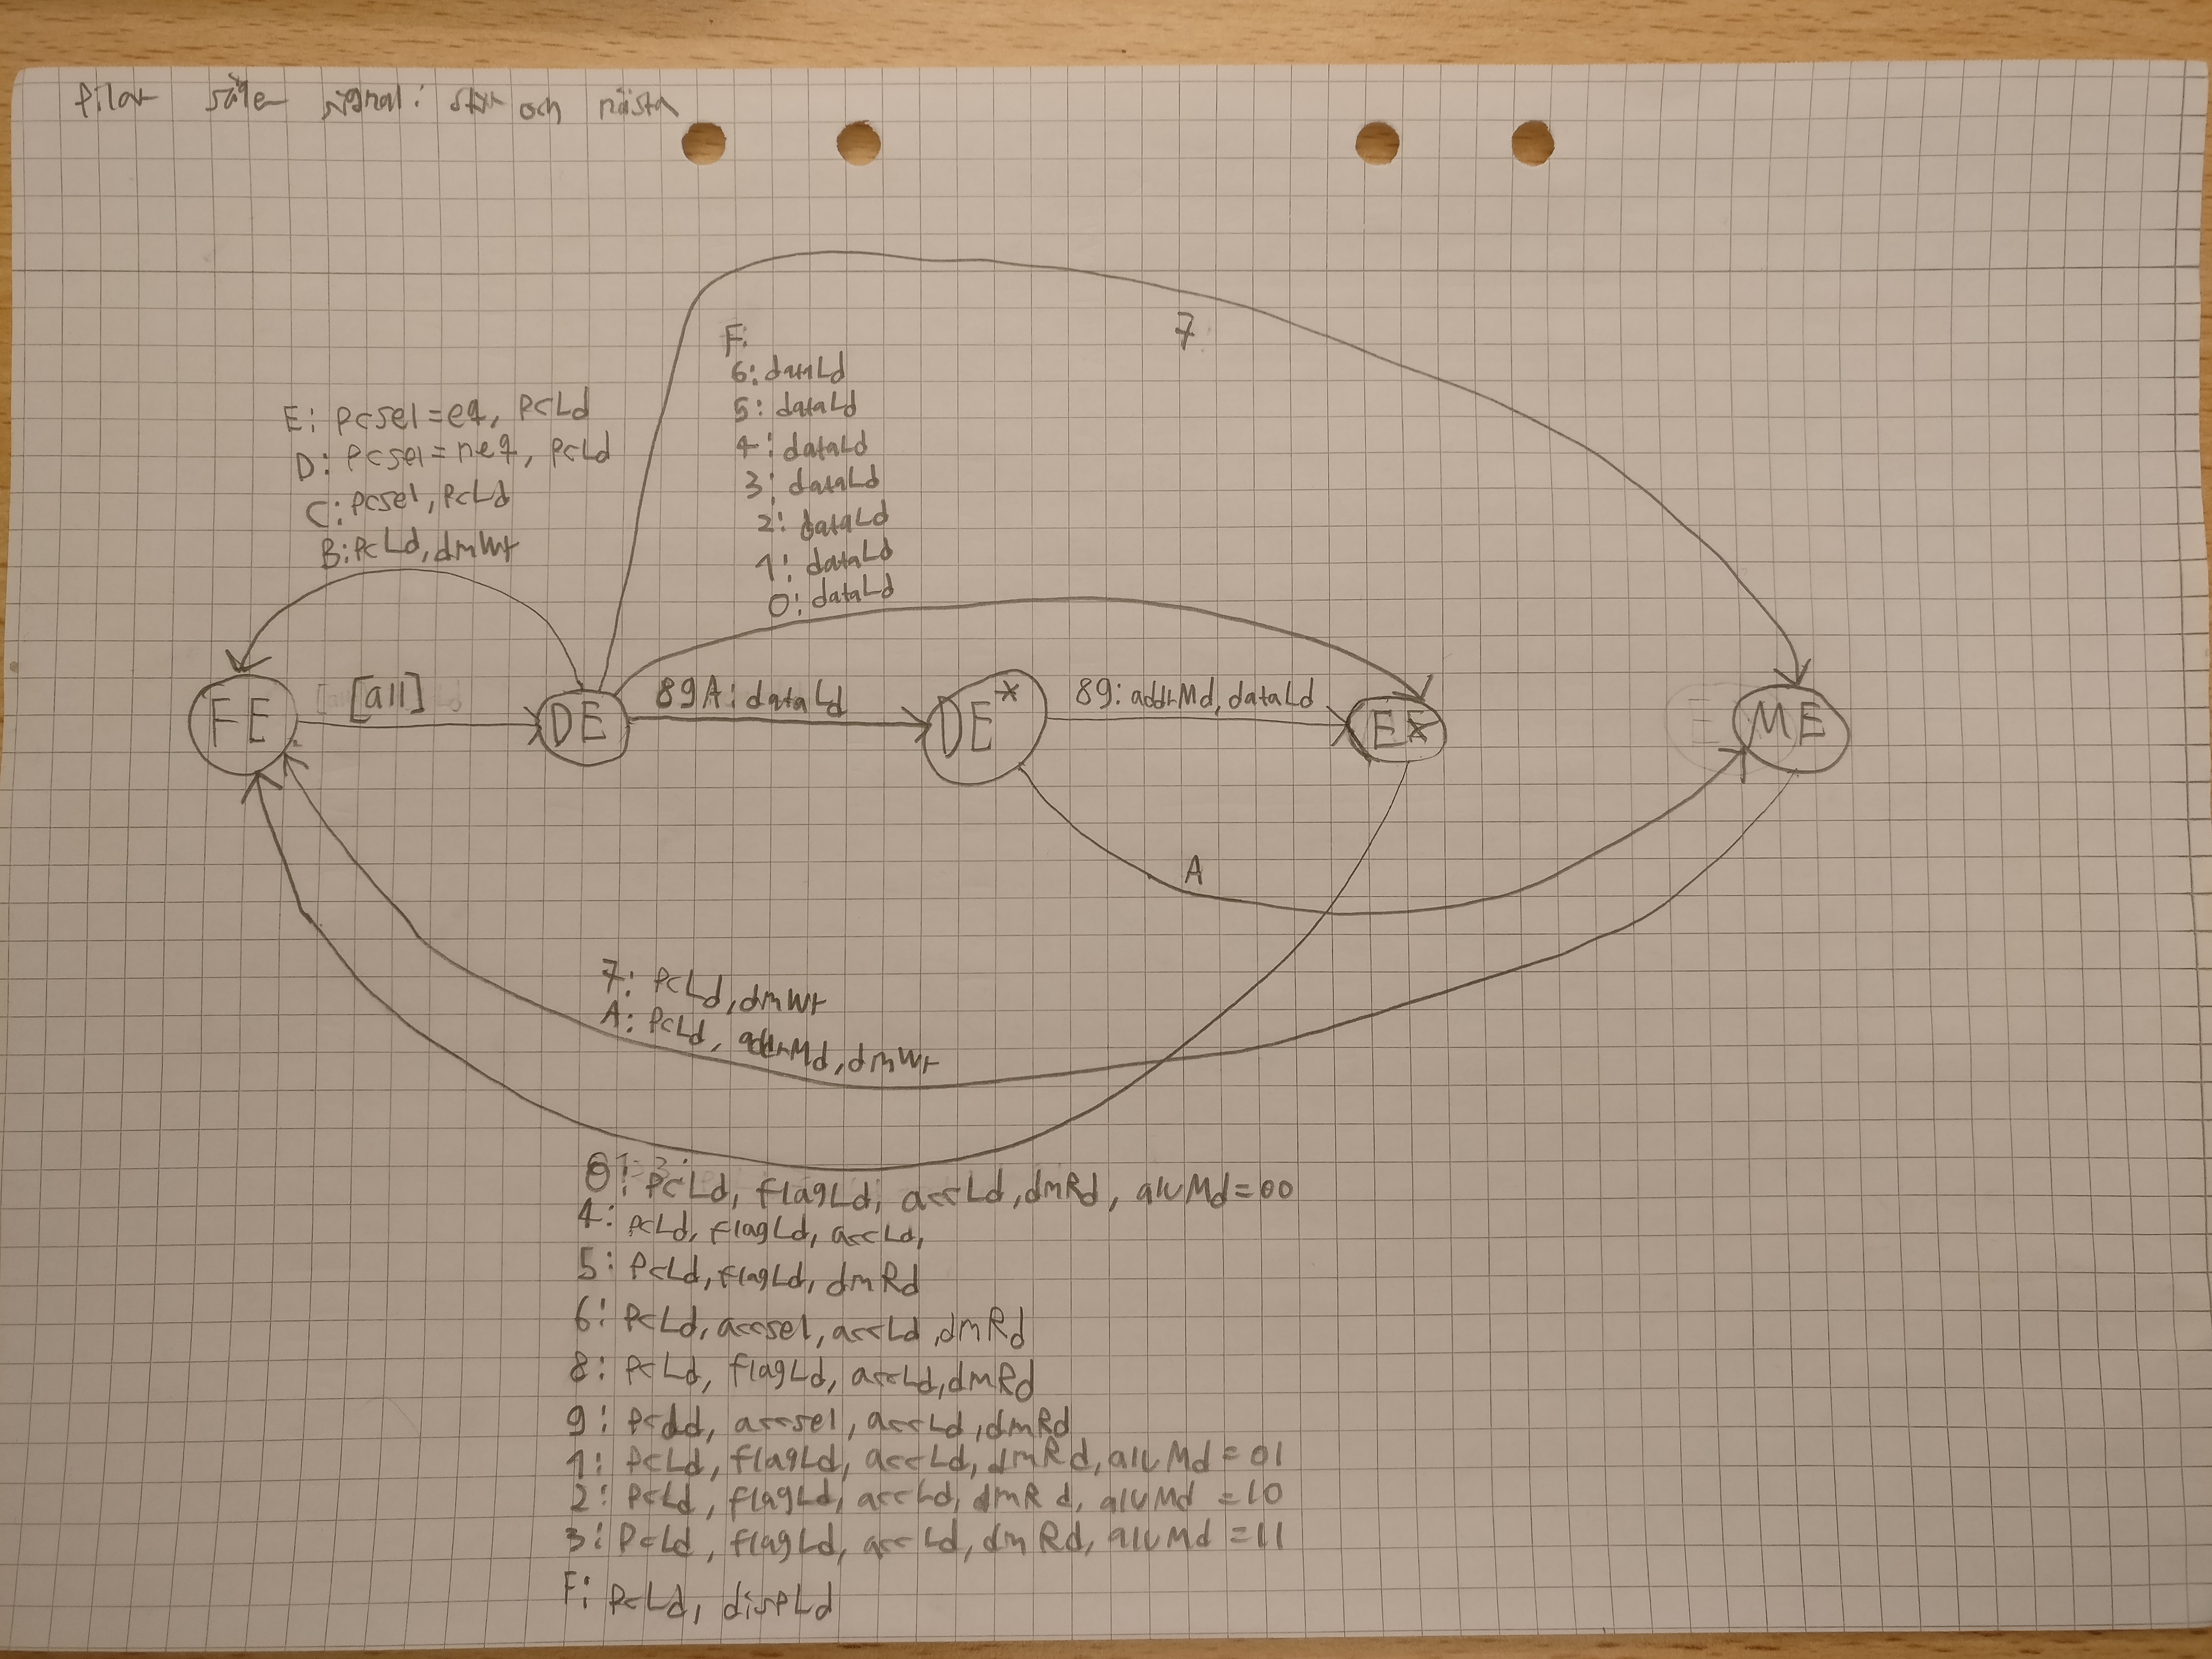 Pilar säger signal: styr och nästa
7
F:
6: dataLd
5: dataLd
4: dataLd
3: dataLd
2: dataLd
1: dataLd
0: dataLd
E: pcsel=eq, pcLd
D: pcsel=neq, pcLd
C: pcsel, pcLd
B: pcLd, dmWr
FE
[all]
DE
89A: dataLd
DE*
89: addrMd, dataLd
EX
ME
A
7: pcLd, dmWr
A: pcLd, addrMd, dmWr
0: pcLd, flagLd, accLd, dmRd, aluMd=00
4: pcLd, flagLd, accLd,
5: pcLd, flagLd, dmRd
6: pcLd, accsel, accLd, dmRd
8: pcLd, flagLd, accLd, dmRd
9: pcLd, accsel, accLd, dmRd
1: pcLd, flagLd, accLd, dmRd, aluMd=01
2: pcLd, flagLd, accLd, dmRd, aluMd=10
3: pcLd, flagLd, accLd, dmRd, aluMd=11
F: pcLd, dispLd